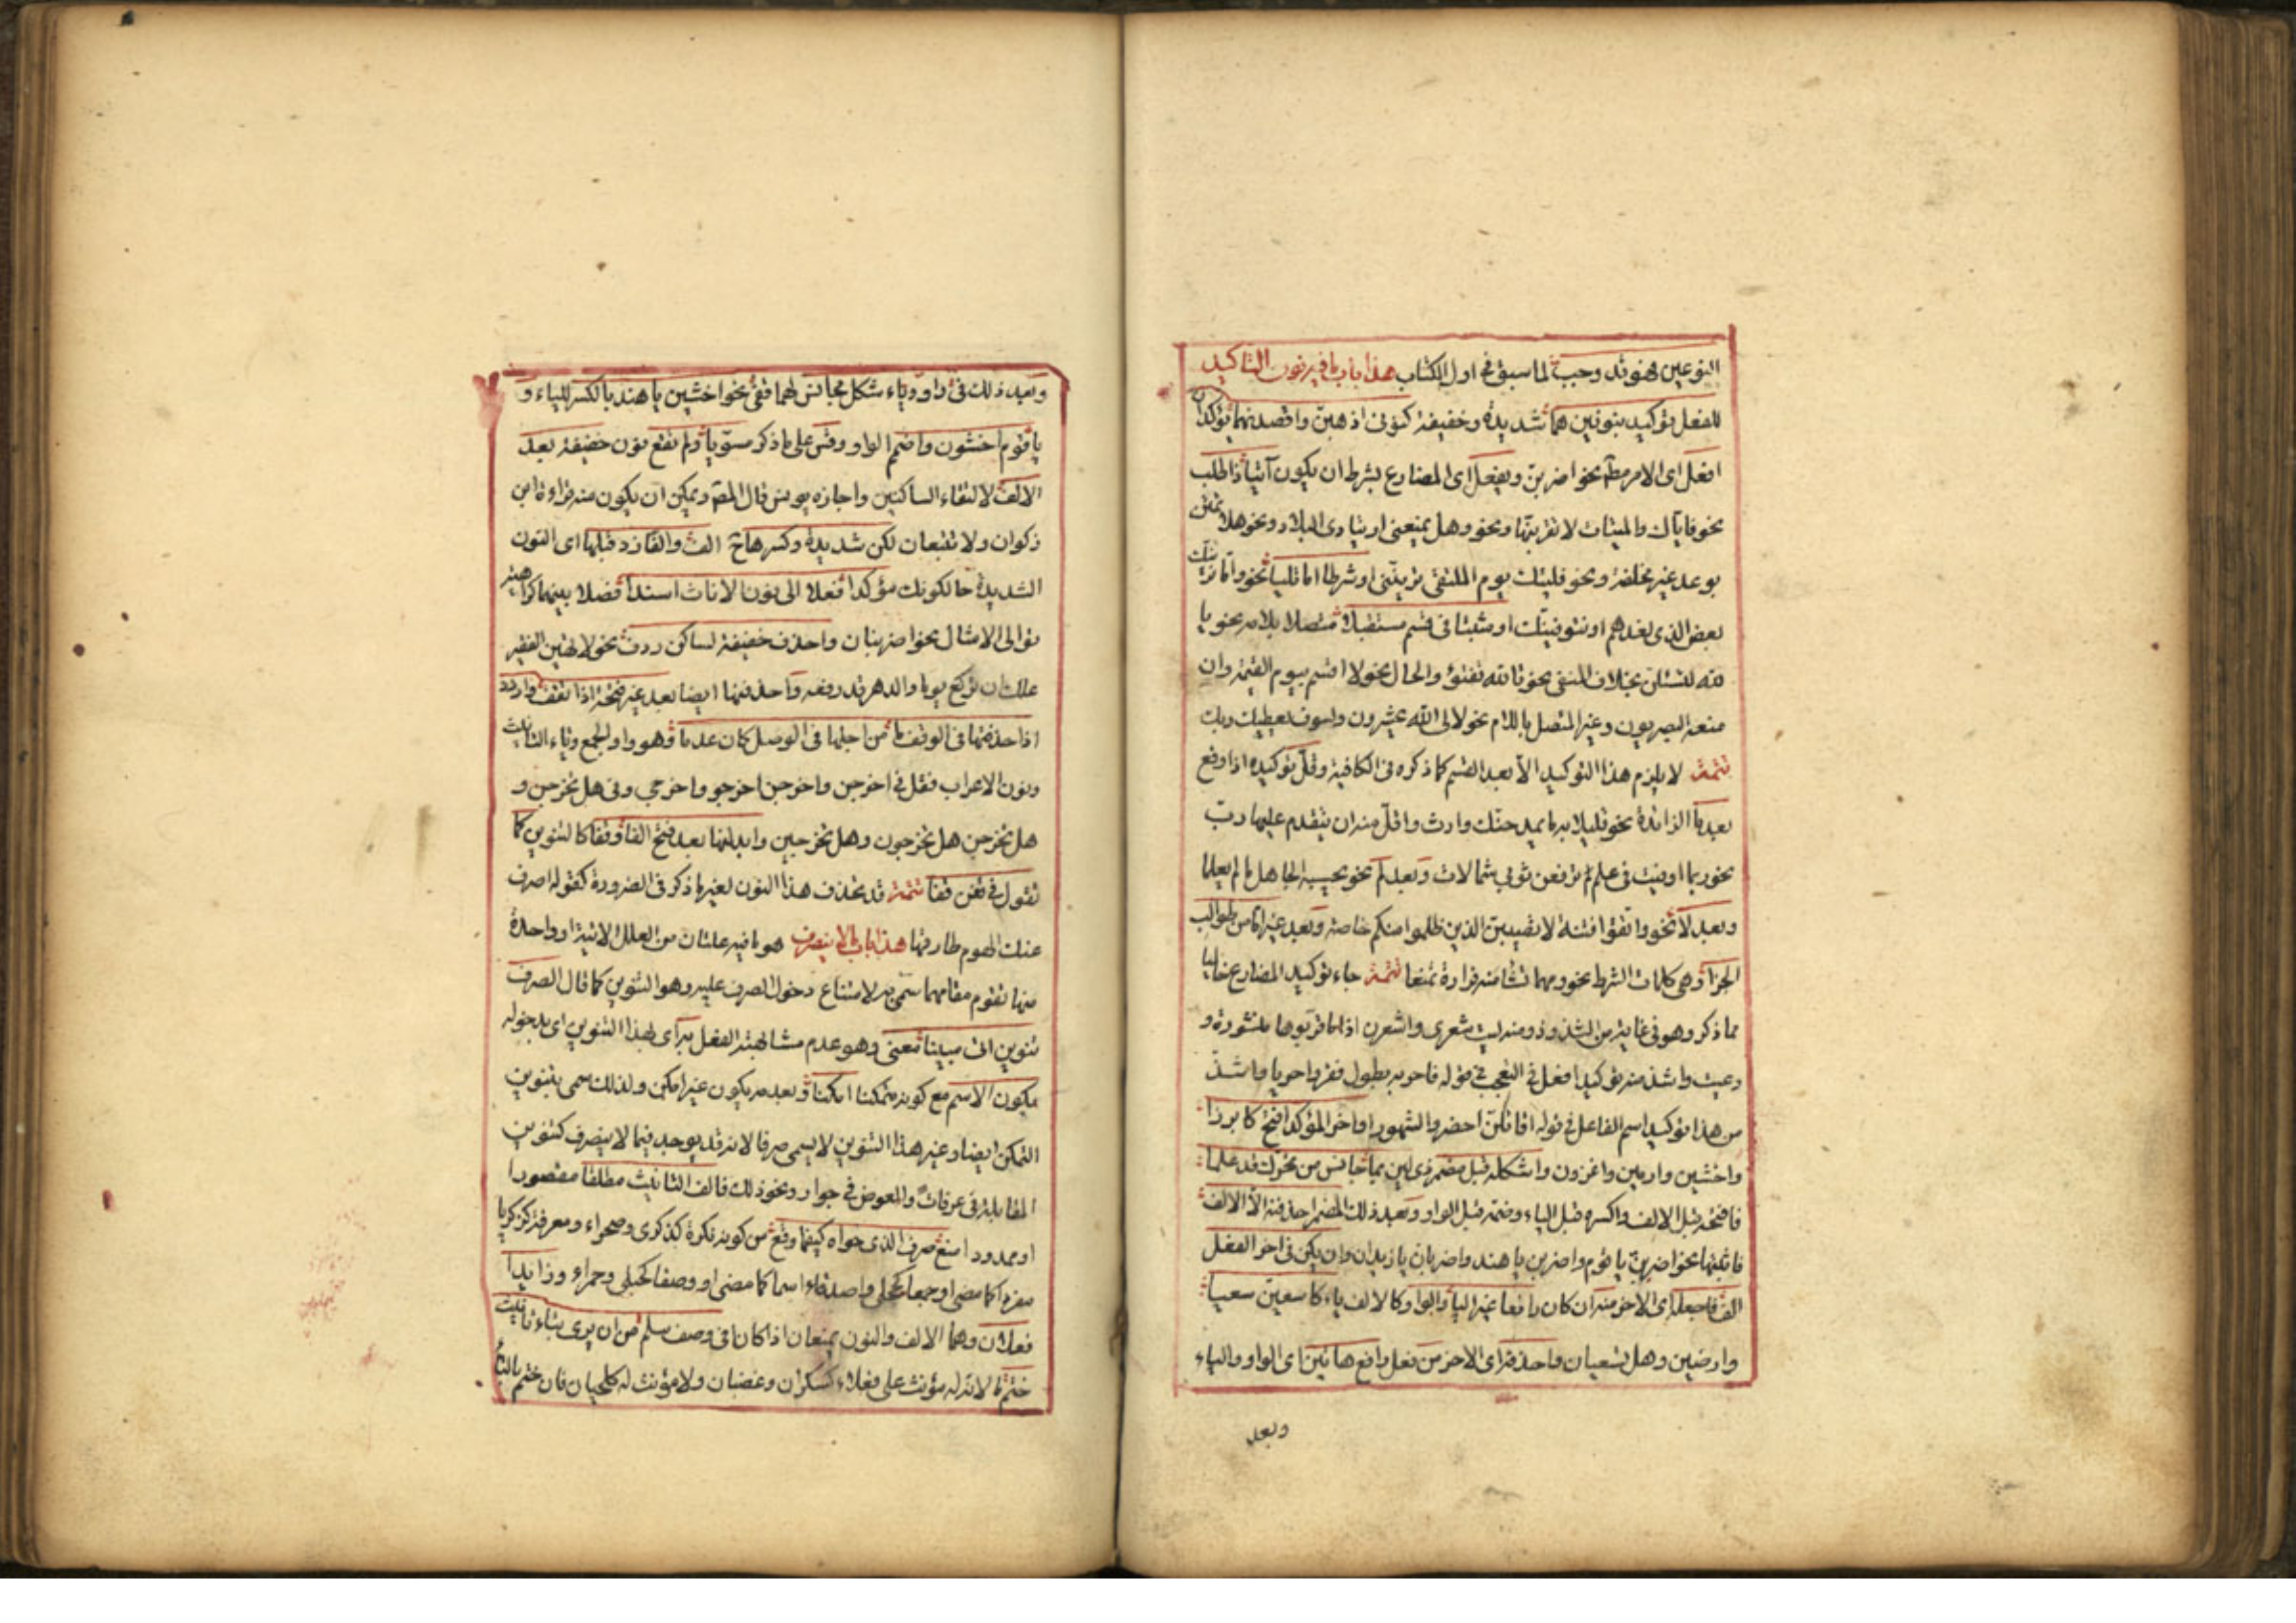 النوعين فهو قد وجب لما سبق في اول الكتاب هذا باب ما فيه نون التاكيد
للفعل توكيد بنونين هما شديدة وخفيفة كنونى اذهبن واقصدنهما يؤكدان
افعل اى الامر مطلقا نحو اضربن ويفعل اى المضارع بشرط ان يكون آتيا ذا طلب
نحو فاياك والميتات لا تقربنها ونحو وهل يمنعنى ارتيادى البلاد ونحو هلا تمنن
بوعد غير مخلفة ونحو فليتك يوم الملتقى ترينّنى او شرطا اما تاليا نحو واما نرينك
بعض الذى نعدهم او نتوفينك او مثبتا فى قسم مستقبلا متصلا بلامه نحو يا
لله لتسئلن بخلاف المنفى نحو تالله تفتؤ والحال نحو لا اقسم بيوم القيمة وان
منعه البصريون وغير المتصل باللام نحو لالى الله تحشرون ولسوف يعطيك ربك
تتمة لا يلزم هذا التوكيد الا بعد القسم كما ذكره فى الكافية وقلّ توكيده اذا وقع
بعد ما الزائدة نحو قليلا به ما يحمدنك وارث واقلّ منه ان يتقدم عليها ربّ
نحو ربما اوفيت فى علم ترفعن ثوبى شمالات وبعد لم نحو يحسبه الجاهل ما لم يعلما
وبعد لا نحو واتقوا فتنة لا تصيبن الذين ظلموا منكم خاصة وبعد غير اما من طوالب
الجزا وهى كلمات الشرط نحو ومهما تشا منه فزارة تمنعا تتمة جاء توكيد المضارع خاليا
مما ذكر وهو فى غاية من الشذوذ ومنه ليت شعرى واشعرن اذا ما قربوها منشورة و
دعيت واشذ منه توكيد افعل فى التعجب فى قوله فاحر به بطول فقر واحريا واشذ
من هذا توكيد اسم الفاعل فى قوله اقائلن احضروا الشهود واخر المؤكد افتح كابرزا
واخشين وارمين واغزون واشكله قبل مضمر ذى لين بما جانس من تحرك قد علما
فافتحه قبل الالف واكسره قبل الياء وضمه قبل الواو وبعد ذلك المضمر احذفنه الا الالف
فاثبتها نحو اضربن يا قوم واضربن يا هند واضربان يا زيدان وان يكن فى اخر الفعل
الف فاجعله اى الاخر منه ان كان رافعا غير اليا والواو كالالف ياء كاسعين سعيا
وارضين وهل تسعيان واحذفه اى الاخر من فعل رافع هاتين اى الواو والياء
وبعد
وبعد ذلك فى واو وياء شكل مجانس لهما قفى نحو اخشين يا هند بالكسر للياء و
يا قوم اخشون واضمم الواو وقس على ما ذكر مسويا ولم تقع نون خفيفة بعد
الالف لالتقاء الساكنين واجازه يونس قال المصّ ويمكن ان يكون منه قراءة ابن
ذكوان ولا تتبعان لكن شديدة وكسرها ح الف والفا زد قبلها اى النون
الشديدة حالكونك مؤكدا فعلا الى نون الاناث اسندا فصلا بينهما كراهية
توالى الامثال نحو اضربنان واحذف خفيفة لساكن ردف نحو لا تهين الفقير
علك ان تركع يوما والدهر قد رفعه واحذفها ايضا بعد غير فتحة اذا تقف واردد
اذا حذفتها فى الوقف ما من اجلها فى الوصل كان عدما وهو واو الجمع وياء التانيث
ونون الاعراب فقل فى اخرجن واخرجن اخرجو واخرجى وفى هل تخرجن و
هل تخرجن هل تخرجون وهل تخرجين وابدلنها بعد فتح الفا وقفا كالتنوين كما
تقول فى قفن قفا تتمة قد تحذف هذا النون لغير ما ذكر فى الضرورة كقوله اصرف
عنك الهموم طارقها هذا باب ما لا ينصرف هو ما فيه علتان من العلل الاتية او واحدة
منها تقوم مقامهما سمى به لامتناع دخول الصرف عليه وهو التنوين كما قال الصرف
تنوين اتى مبينا معنى وهو عدم مشابهته الفعل به اى بهذا التنوين اى بدخوله
يكون الاسم مع كونه متمكنا امكنا وبعدمه يكون غير امكن ولذلك سمى بتنوين
التمكن ايضا وغير هذا التنوين لا يسمى صرفا لانه قد يوجد فيما لا ينصرف كتنوين
المقابلة فى عرفات والمعوض فى جوار ونحو ذلك فالف التانيث مطلقا مقصورا
او ممدودا منع صرف الذى حواه كيفما وقع من كونه نكرة كذكرى وصحراء ومعرفة كزكريا
مفردا كما مضى او جمعا كحجلى واصدقاء اسما كما مضى او وصفا كحبلى وحمراء وزائدا
فعلان وهما الالف والنون يمنعان اذا كانا فى وصف سلم من ان يرى بتاء تانيث
ختم اما لانه له مؤنث على فعلاء كسكران وغضبان ولا مؤنث له كلحيان فان ختم بالتاء